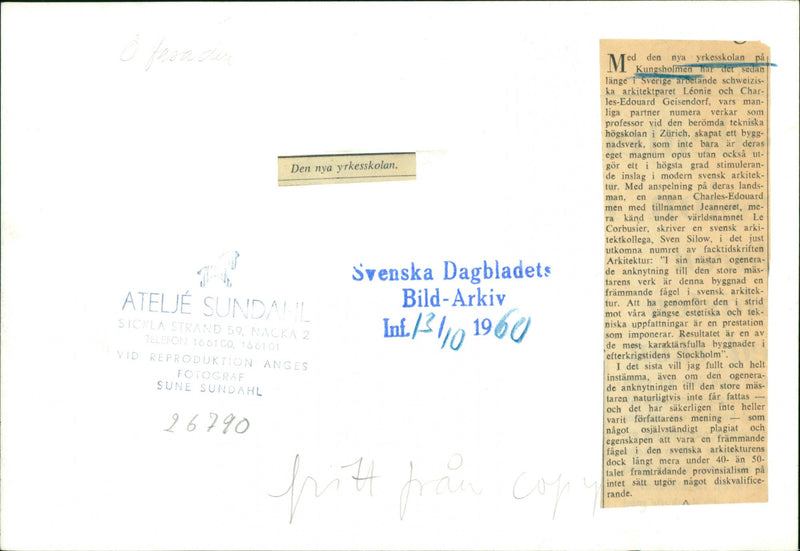 Ö fasader
Den nya yrkesskolan.
ATELJÉ SUNDAHL
SICKLA STRAND 59, NACKA 2
TELEFON 166100, 166101
VID REPRODUKTION ANGES
FOTOGRAF
SUNE SUNDAHL
26790
Svenska Dagbladets
Bild-Arkiv
Inf. 13/10 1960
fritt från copy
Med den nya yrkesskolan på
Kungsholmen har det sedan
länge i Sverige arbetande schweizis-
ka arkitektparet Léonie och Char-
les-Edouard Geisendorf, vars man-
liga partner numera verkar som
professor vid den berömda tekniska
högskolan i Zürich, skapat ett bygg-
nadsverk, som inte bara är deras
eget magnum opus utan också ut-
gör ett i högsta grad stimuleran-
de inslag i modern svensk arkitek-
tur. Med anspelning på deras lands-
man, en annan Charles-Edouard
men med tillnamnet Jeanneret, me-
ra känd under världsnamnet Le
Corbusier, skriver en svensk arki-
tektkollega, Sven Silow, i det just
utkomna numret av facktidskriften
Arkitektur: "I sin nästan ogenera-
de anknytning till den store mäs-
tarens verk är denna byggnad en
främmande fågel i svensk arkitek-
tur. Att ha genomfört den i strid
mot våra gängse estetiska och tek-
niska uppfattningar är en prestation
som imponerar. Resultatet är en av
de mest karaktärsfulla byggnader i
efterkrigstidens Stockholm".
I det sista vill jag fullt och helt
instämma, även om den ogenera-
de anknytningen till den store mäs-
taren naturligtvis inte får fattas —
och det har säkerligen inte heller
varit författarens mening — som
något osjälvständigt plagiat och
egenskapen att vara en främmande
fågel i den svenska arkitekturens
dock långt mera under 40- än 50-
talet framträdande provinsialism på
intet sätt utgör något diskvalifice-
rande.